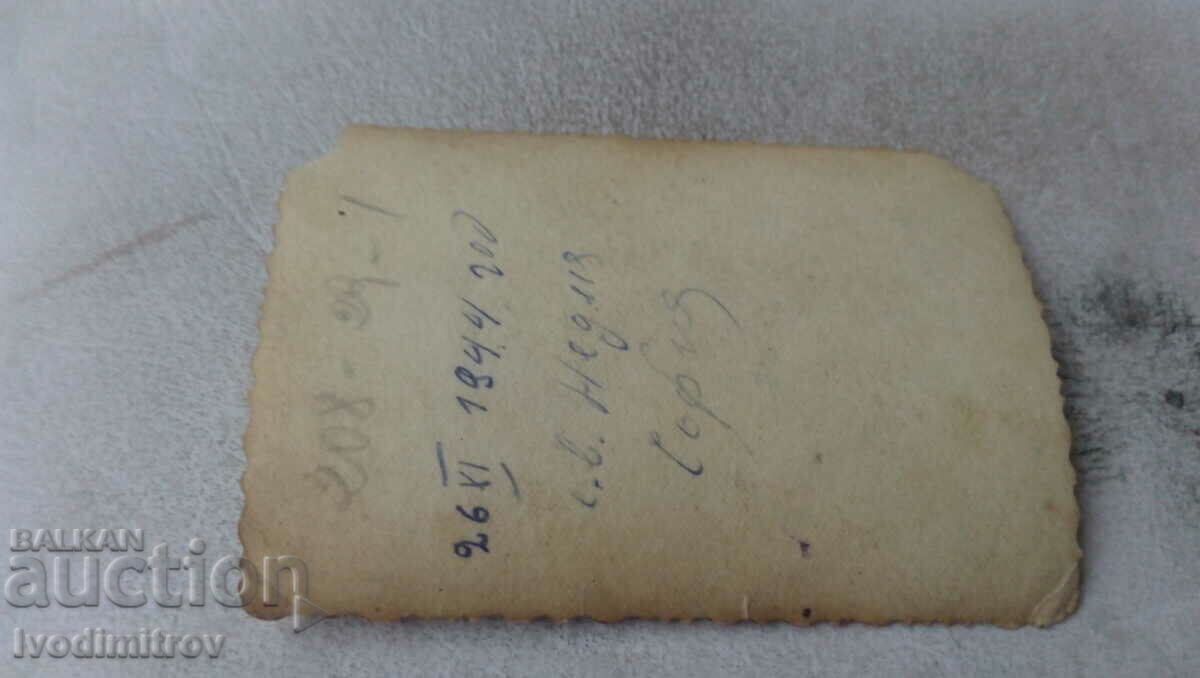 208 - 29 - 1
26 XI 1944 год
с.в. Неделя
София
BALKAN
auction
Ivodimitrov